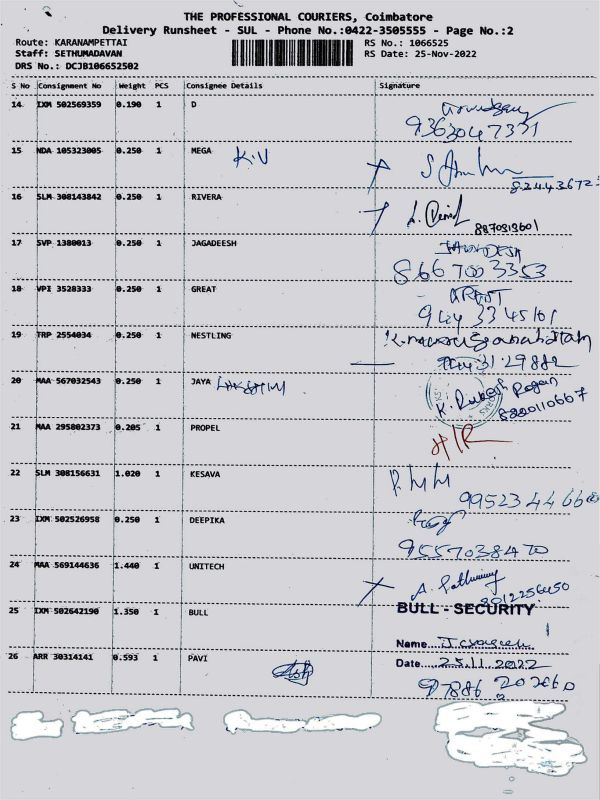 THE PROFESSIONAL COURIERS, Coimbatore
Delivery Runsheet - SUL - Phone No.:0422-3505555 - Page No.:2
Route: KARANAMPETTAI RS No.: 1066525
Staff: SETHUMADAVAN RS Date: 25-Nov-2022
DRS No.: DCJB106652502
S No Consignment No Weight PCS Consignee Details Signature
14 IXM 502569359 0.190 1 D
9363047371
15 NDA 105323005 0.250 1 MEGA K.V
16 SLM 308143842 0.250 1 RIVERA
8870813601
17 SVP 1380013 0.250 1 JAGADEESH
866 700 3353
18 VPI 3528333 0.250 1 GREAT
19 TRP 2554034 0.250 1 NESTLING
20 MAA 567032543 0.250 1 JAYA LAKSHMI
K. Rakesh Rogan
8220110667
21 MAA 295802373 0.205 1 PROPEL
H/R
22 SLM 308156631 1.020 1 KESAVA
23 IXM 502526958 0.250 1 DEEPIKA
9557038470
24 MAA 569144636 1.440 1 UNITECH
25 IXM 502642190 1.350 1 BULL
BULL - SECURITY
Name
26 ARR 30314141 0.593 1 PAVI
Date 25.11.2022
97886 20266 0